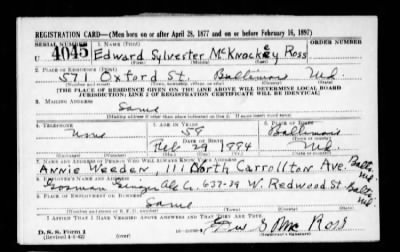 REGISTRATION CARD—(Men born on or after April 28, 1877 and on or before February 16, 1897)
SERIAL NUMBER 1. NAME (Print) ORDER NUMBER
U 4045 Edward Sylvester McKnockey Ross
2. PLACE OF RESIDENCE (Print)
571 Oxford St. Baltimore Md.
[THE PLACE OF RESIDENCE GIVEN ON THE LINE ABOVE WILL DETERMINE LOCAL BOARD
JURISDICTION; LINE 2 OF REGISTRATION CERTIFICATE WILL BE IDENTICAL]
3. MAILING ADDRESS
Same
4. TELEPHONE 5. AGE IN YEARS 6. PLACE OF BIRTH
None 58 Baltimore
DATE OF BIRTH
Feb 29 1884 Md.
7. NAME AND ADDRESS OF PERSON WHO WILL ALWAYS KNOW YOUR ADDRESS
Annie Weeden, 111 North Carrollton Ave. Balto Md.
8. EMPLOYER'S NAME AND ADDRESS
Ginger Ale Co. 637-39 W. Redwood St. Balto Md.
9. PLACE OF EMPLOYMENT OR BUSINESS
Same
I AFFIRM THAT I HAVE VERIFIED ABOVE ANSWERS AND THAT THEY ARE TRUE.
D. S. S. Form 1
(Revised 4-1-42) Edw S Mc Ross